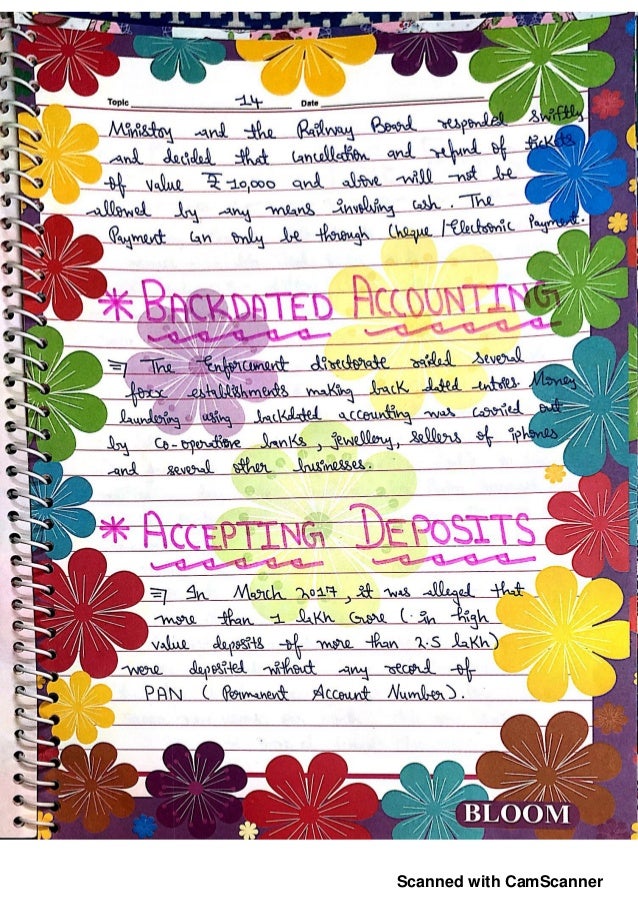 Topic 14 Date
Ministry and the Railway Board responded swiftly
and decided that cancellation and refund of tickets
of value ₹ 10,000 and above will not be
allowed by any means involving cash. The
Payment can only be through Cheque / Electronic Payment.
* BACKDATED ACCOUNTING
⇒ The Enforcument directorate raided several
foxx establishments making back dated entries Money
laundering using backdated accounting was carried out
by Co-operative banks, jewellery, sellers of iphones
and several other businesses.
* ACCEPTING DEPOSITS
⇒ In March 2017, it was alleged that
more than 1 lakh Crore (in high
value deposits of more than 2.5 lakh)
were deposited without any record of
PAN ( Permanent Account Number).
BLOOM
Scanned with CamScanner